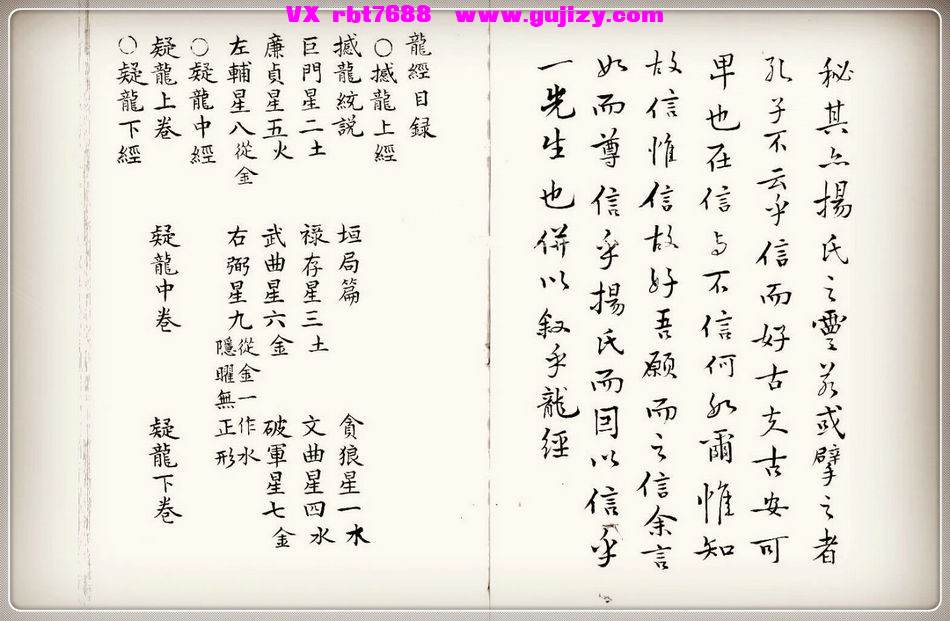 VX rbt7688 www.gujizy.com
秘其亦揚氏之靈若或擘之者
孔子不云乎信而好古夫古安可
卑也在信与不信何如爾惟知
故信惟信故好吾願而之信余言
如而尊信乎揚氏而因以信乎
一先生也併以叙乎龍經
龍經目録
○撼龍上經
撼龍統説 垣局篇 貪狼星一水
巨門星二土 祿存星三土 文曲星四水
廉貞星五火 武曲星六金 破軍星七金
左輔星八從金 右弼星九從金一作水隱曜無正形
○疑龍中經
疑龍上卷 疑龍中卷 疑龍下卷
○疑龍下經